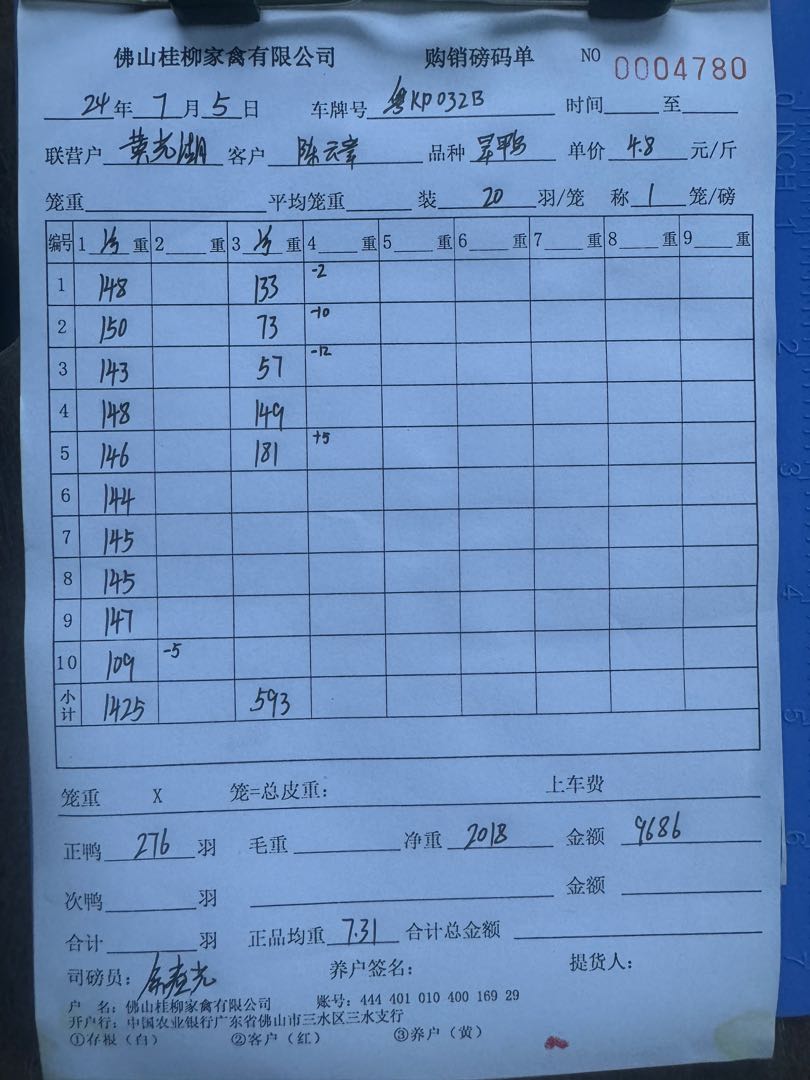 佛山桂柳家禽有限公司 购销磅码单 NO 0004780
24年 7月 5日 车牌号 粤KP032B 时间 至
联营户 黄光湖 客户 陈云章 品种 单价 4.8 元/斤
笼重 平均笼重 装 20 羽/笼 称 1 笼/磅
编号 1 重 2 重 3 重 4 重 5 重 6 重 7 重 8 重 9 重
1 148 133 -2
2 150 73 -10
3 143 57 -12
4 148 149
5 146 181 +5
6 144
7 145
8 145
9 147
10 109 -5
小计 1425 593
笼重 X 笼=总皮重: 上车费
正鸭 276 羽 毛重 净重 2018 金额 9686
次鸭 羽 金额
合计 羽 正品均重 7.31 合计总金额
司磅员: 养户签名: 提货人:
户 名: 佛山桂柳家禽有限公司 账号: 444 401 010 400 169 29
开户行: 中国农业银行广东省佛山市三水区三水支行
①存根（白） ②客户（红） ③养户（黄）
0 INCH 1 2 3 4 5 6 7